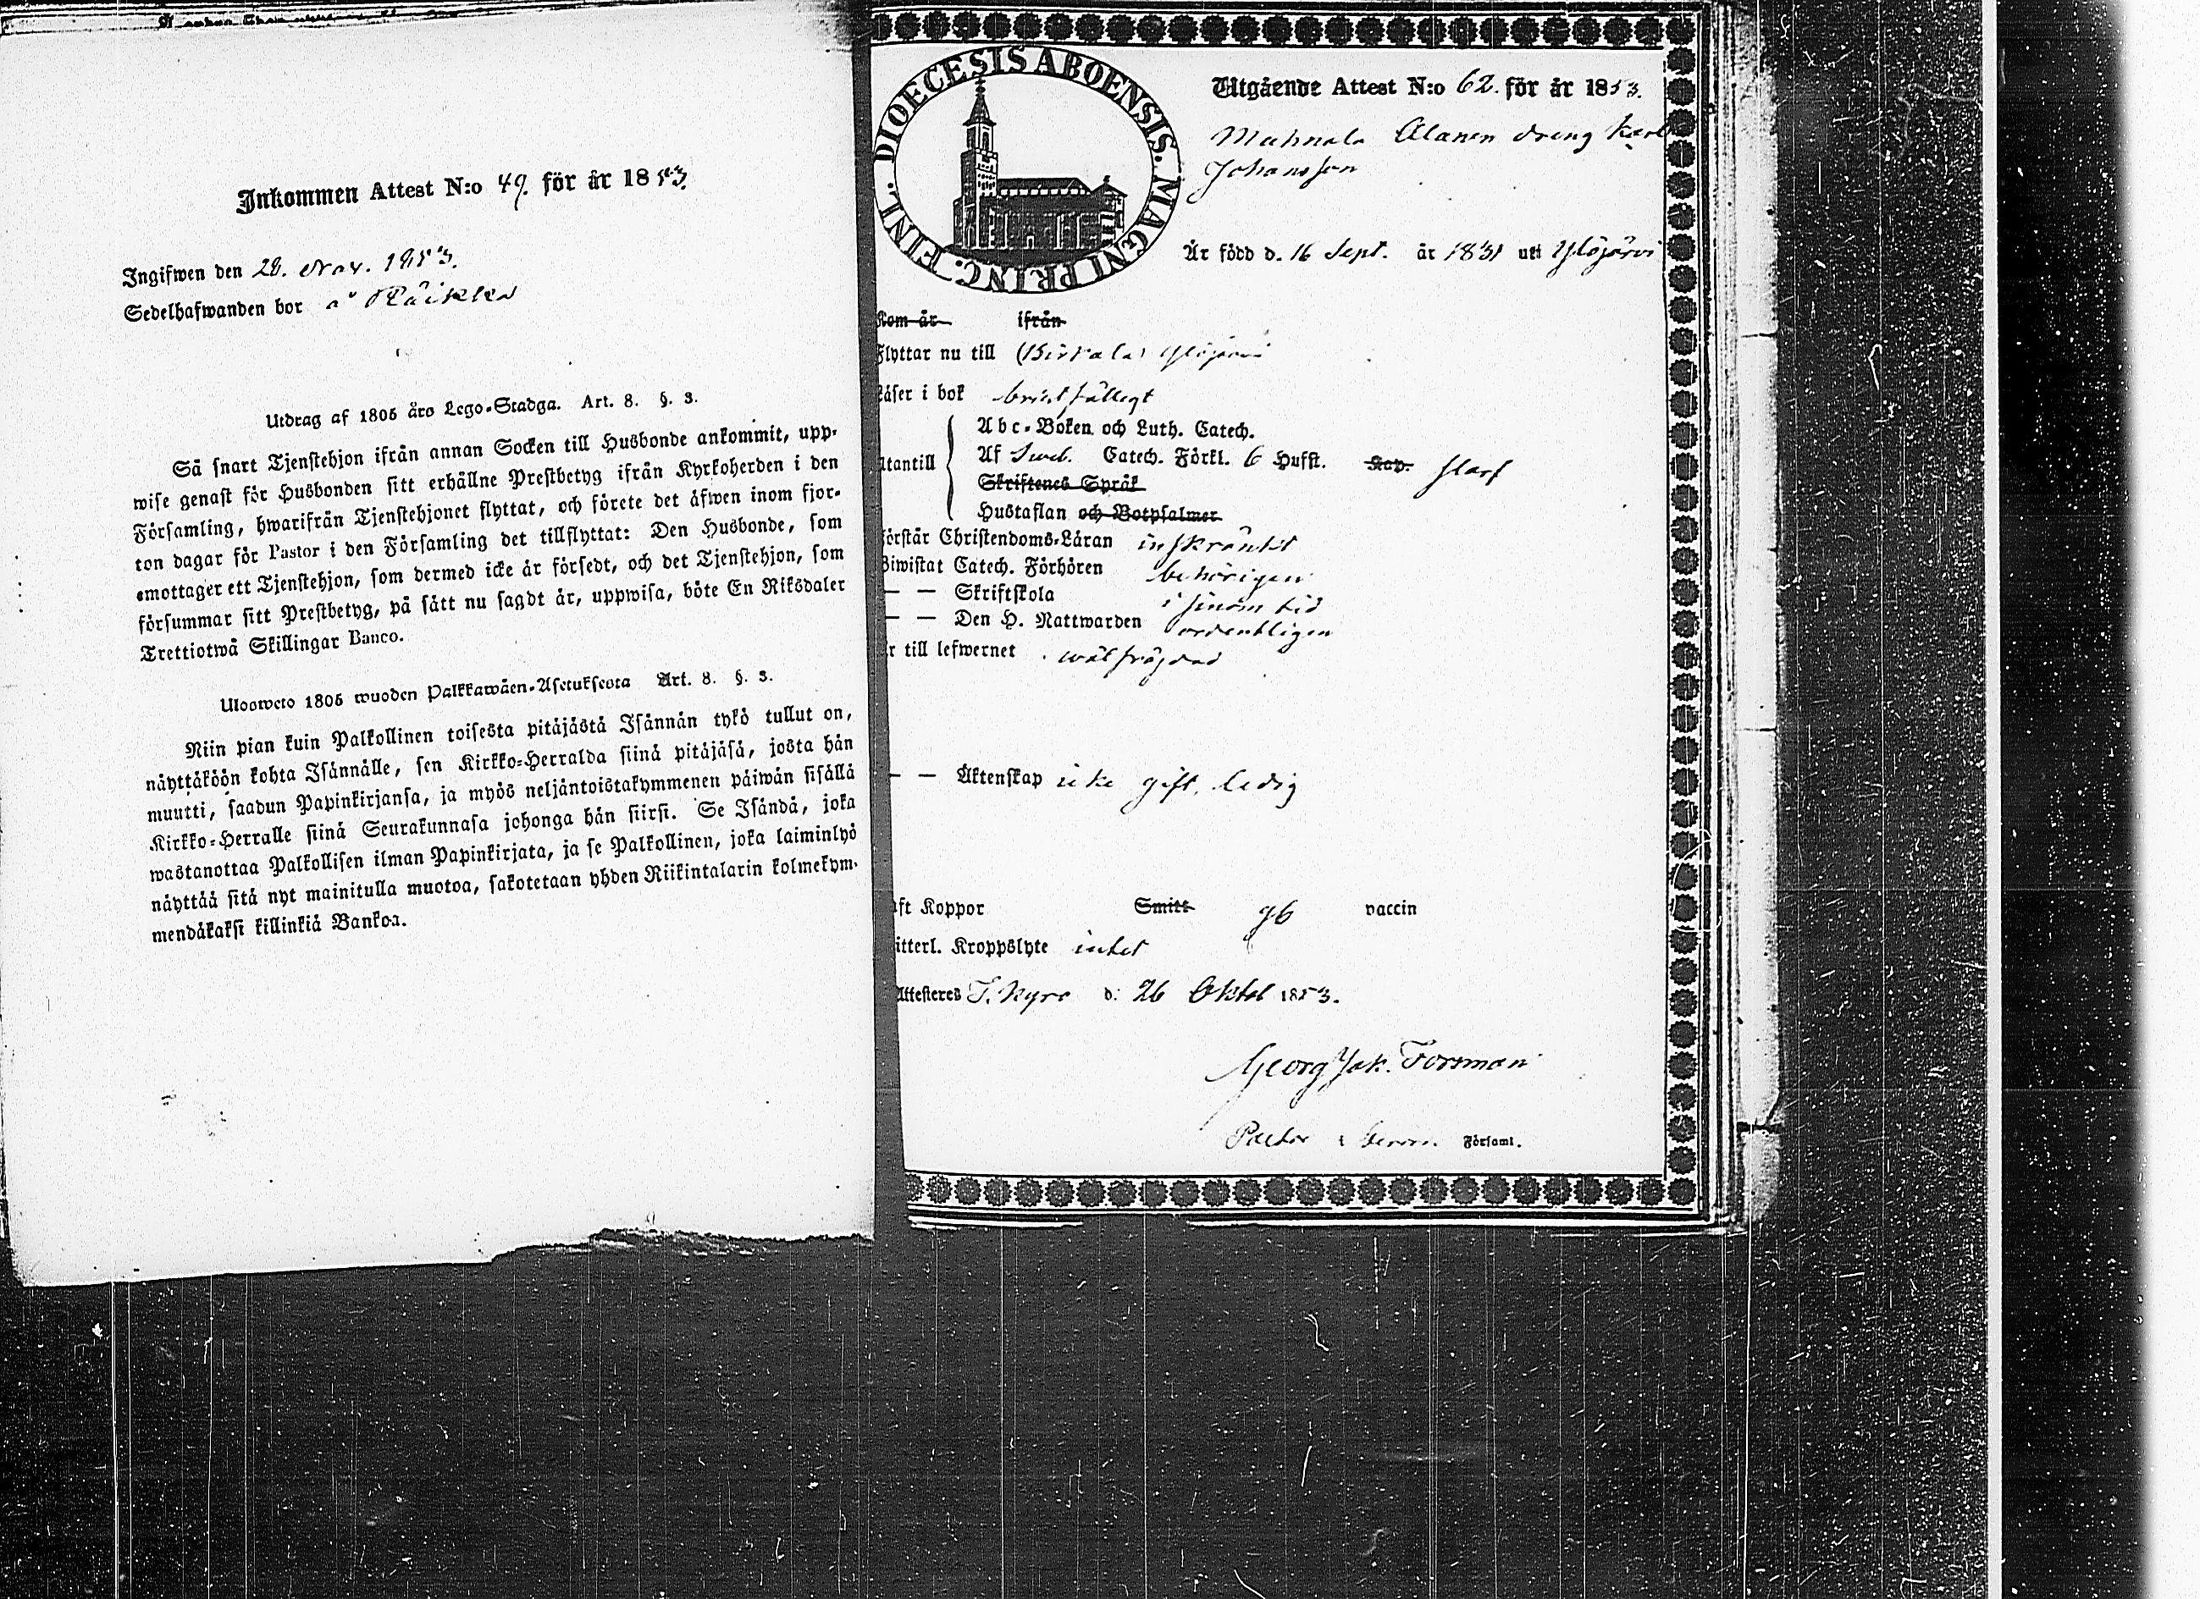 Inkommen Attest N:o 49. för år 1853.
Ingifwen den 28. Nov. 1853.
Sedelhafwanden bor å Räikkä
Utdrag af 1805 års Lego-Stadga. Art. 8. §. 3.
Så snart Tjenstehjon ifrån annan Socken till Husbonde ankommit, upp-
wise genast för Husbonden sitt erhållne Prestbetyg ifrån Kyrkoherden i den
Församling, hwarifrån Tjenstehjonet flyttat, och förete det äfwen inom fjor-
ton dagar för Pastor i den Församling det tillflyttat: Den Husbonde, som
emottager ett Tjenstehjon, som dermed icke är försedt, och det Tjenstehjon, som
försummar sitt Prestbetyg, på sätt nu sagdt är, uppwisa, böte En Riksdaler
Trettiotwå Skillingar Banco.
Ulosweto 1805 wuoden Palkkawäen-Asetuksesta Art. 8. §. 3.
Niin pian kuin Palkollinen toisesta pitäjästä Isännän tykö tullut on,
näyttäköön kohta Isännälle, sen Kirkko-Herralda siinä pitäjäsä, josta hän
muutti, saadun Papinkirjansa, ja myös neljäntoistakymmenen päiwän sisällä
Kirkko-Herralle siinä Seurakunnasa johonga hän siirsi. Se Isändä, joka
wastanottaa Palkollisen ilman Papinkirjata, ja se Palkollinen, joka laiminlyö
näyttää sitä nyt mainitulla muotoa, sakotetaan yhden Riikintalarin kolmekym-
mendäkaksi killinkiä Bankoa.
DIOECESIS ABOENSIS. MAGNI PRINC. FINL.
Utgående Attest N:o 62. för år 1853.
Mahnala Alanen dreng Karl
Johansson
Är född d. 16 Sept. år 1831 uti Ylöjärvi
Kom år ifrån
Flyttar nu till (Birkala) Ylöjärvi
Läser i bok bristfälligt
Abc-Boken och Luth. Catech.
Utantill Af Sweb. Catech. Förkl. 6 Hufst. Kap. slarf
Skriftenes Språk
Hustaflan och Botpsalmer
Förstår Christendoms-Läran inskränkt
Biwistat Catech. Förhören behörigen
— — Skriftskola i sinom tid
— — Den H. Nattwarden ordentligen
Är till lefwernet wälfrägdad
— — Äktenskap icke gift, ledig
Haft Koppor Smitt gb vaccin
Witterl. Kroppslyte intet
Attesteres T. Kyro d. 26 Oktob 1853.
Georg Jak. Forsman
Pastor i Församl.